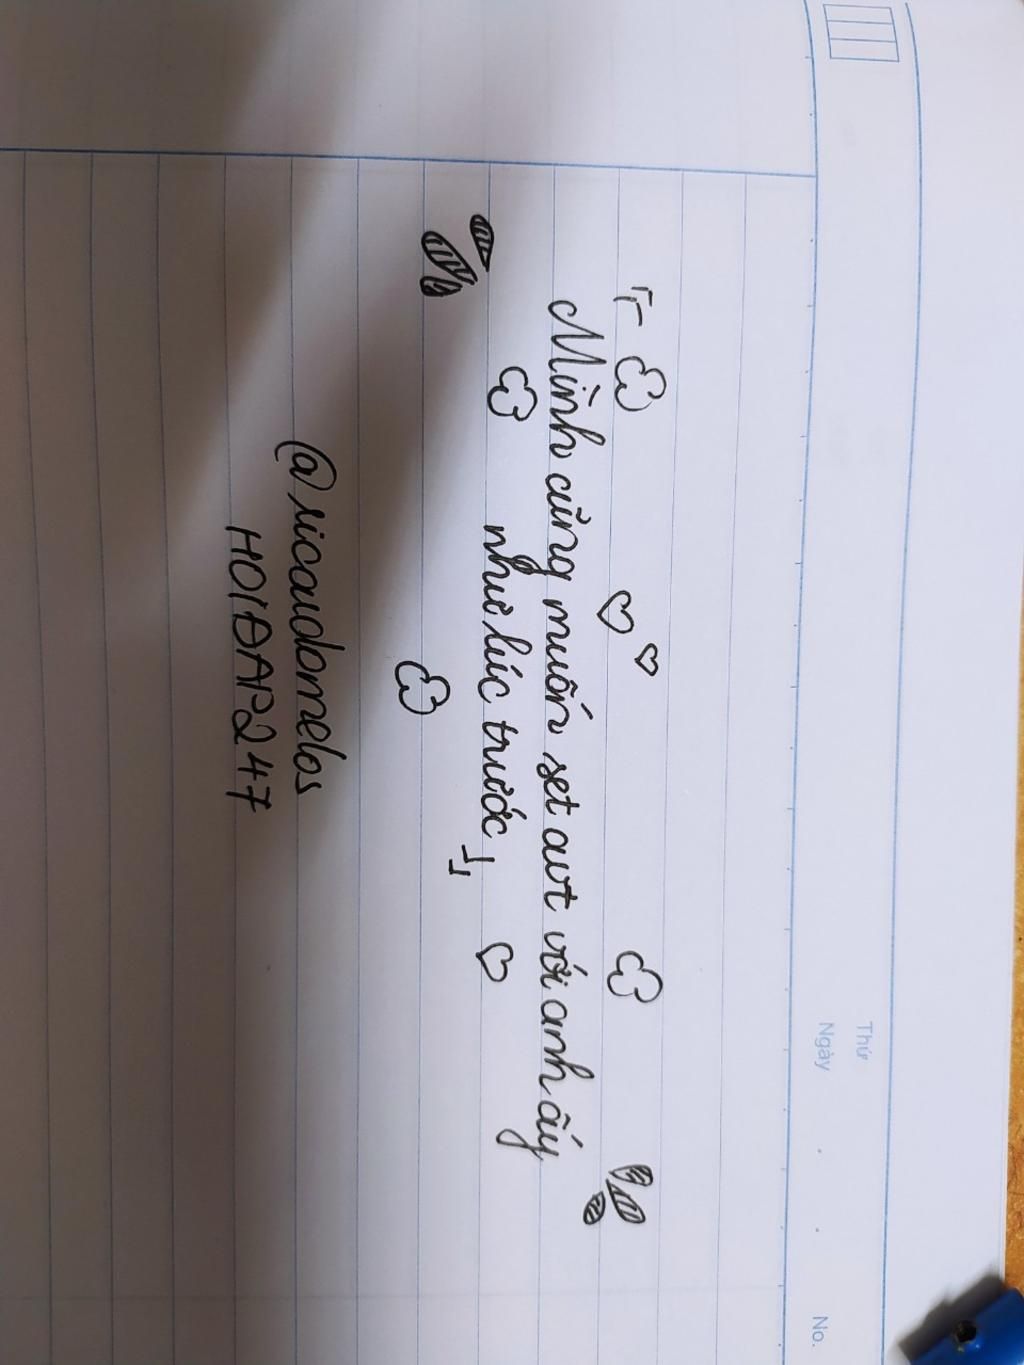 Thứ
Ngày
No.
「Mình cũng muốn set avt với anh ấy
như lúc trước」
@ricaudomelos
HOIĐAP247